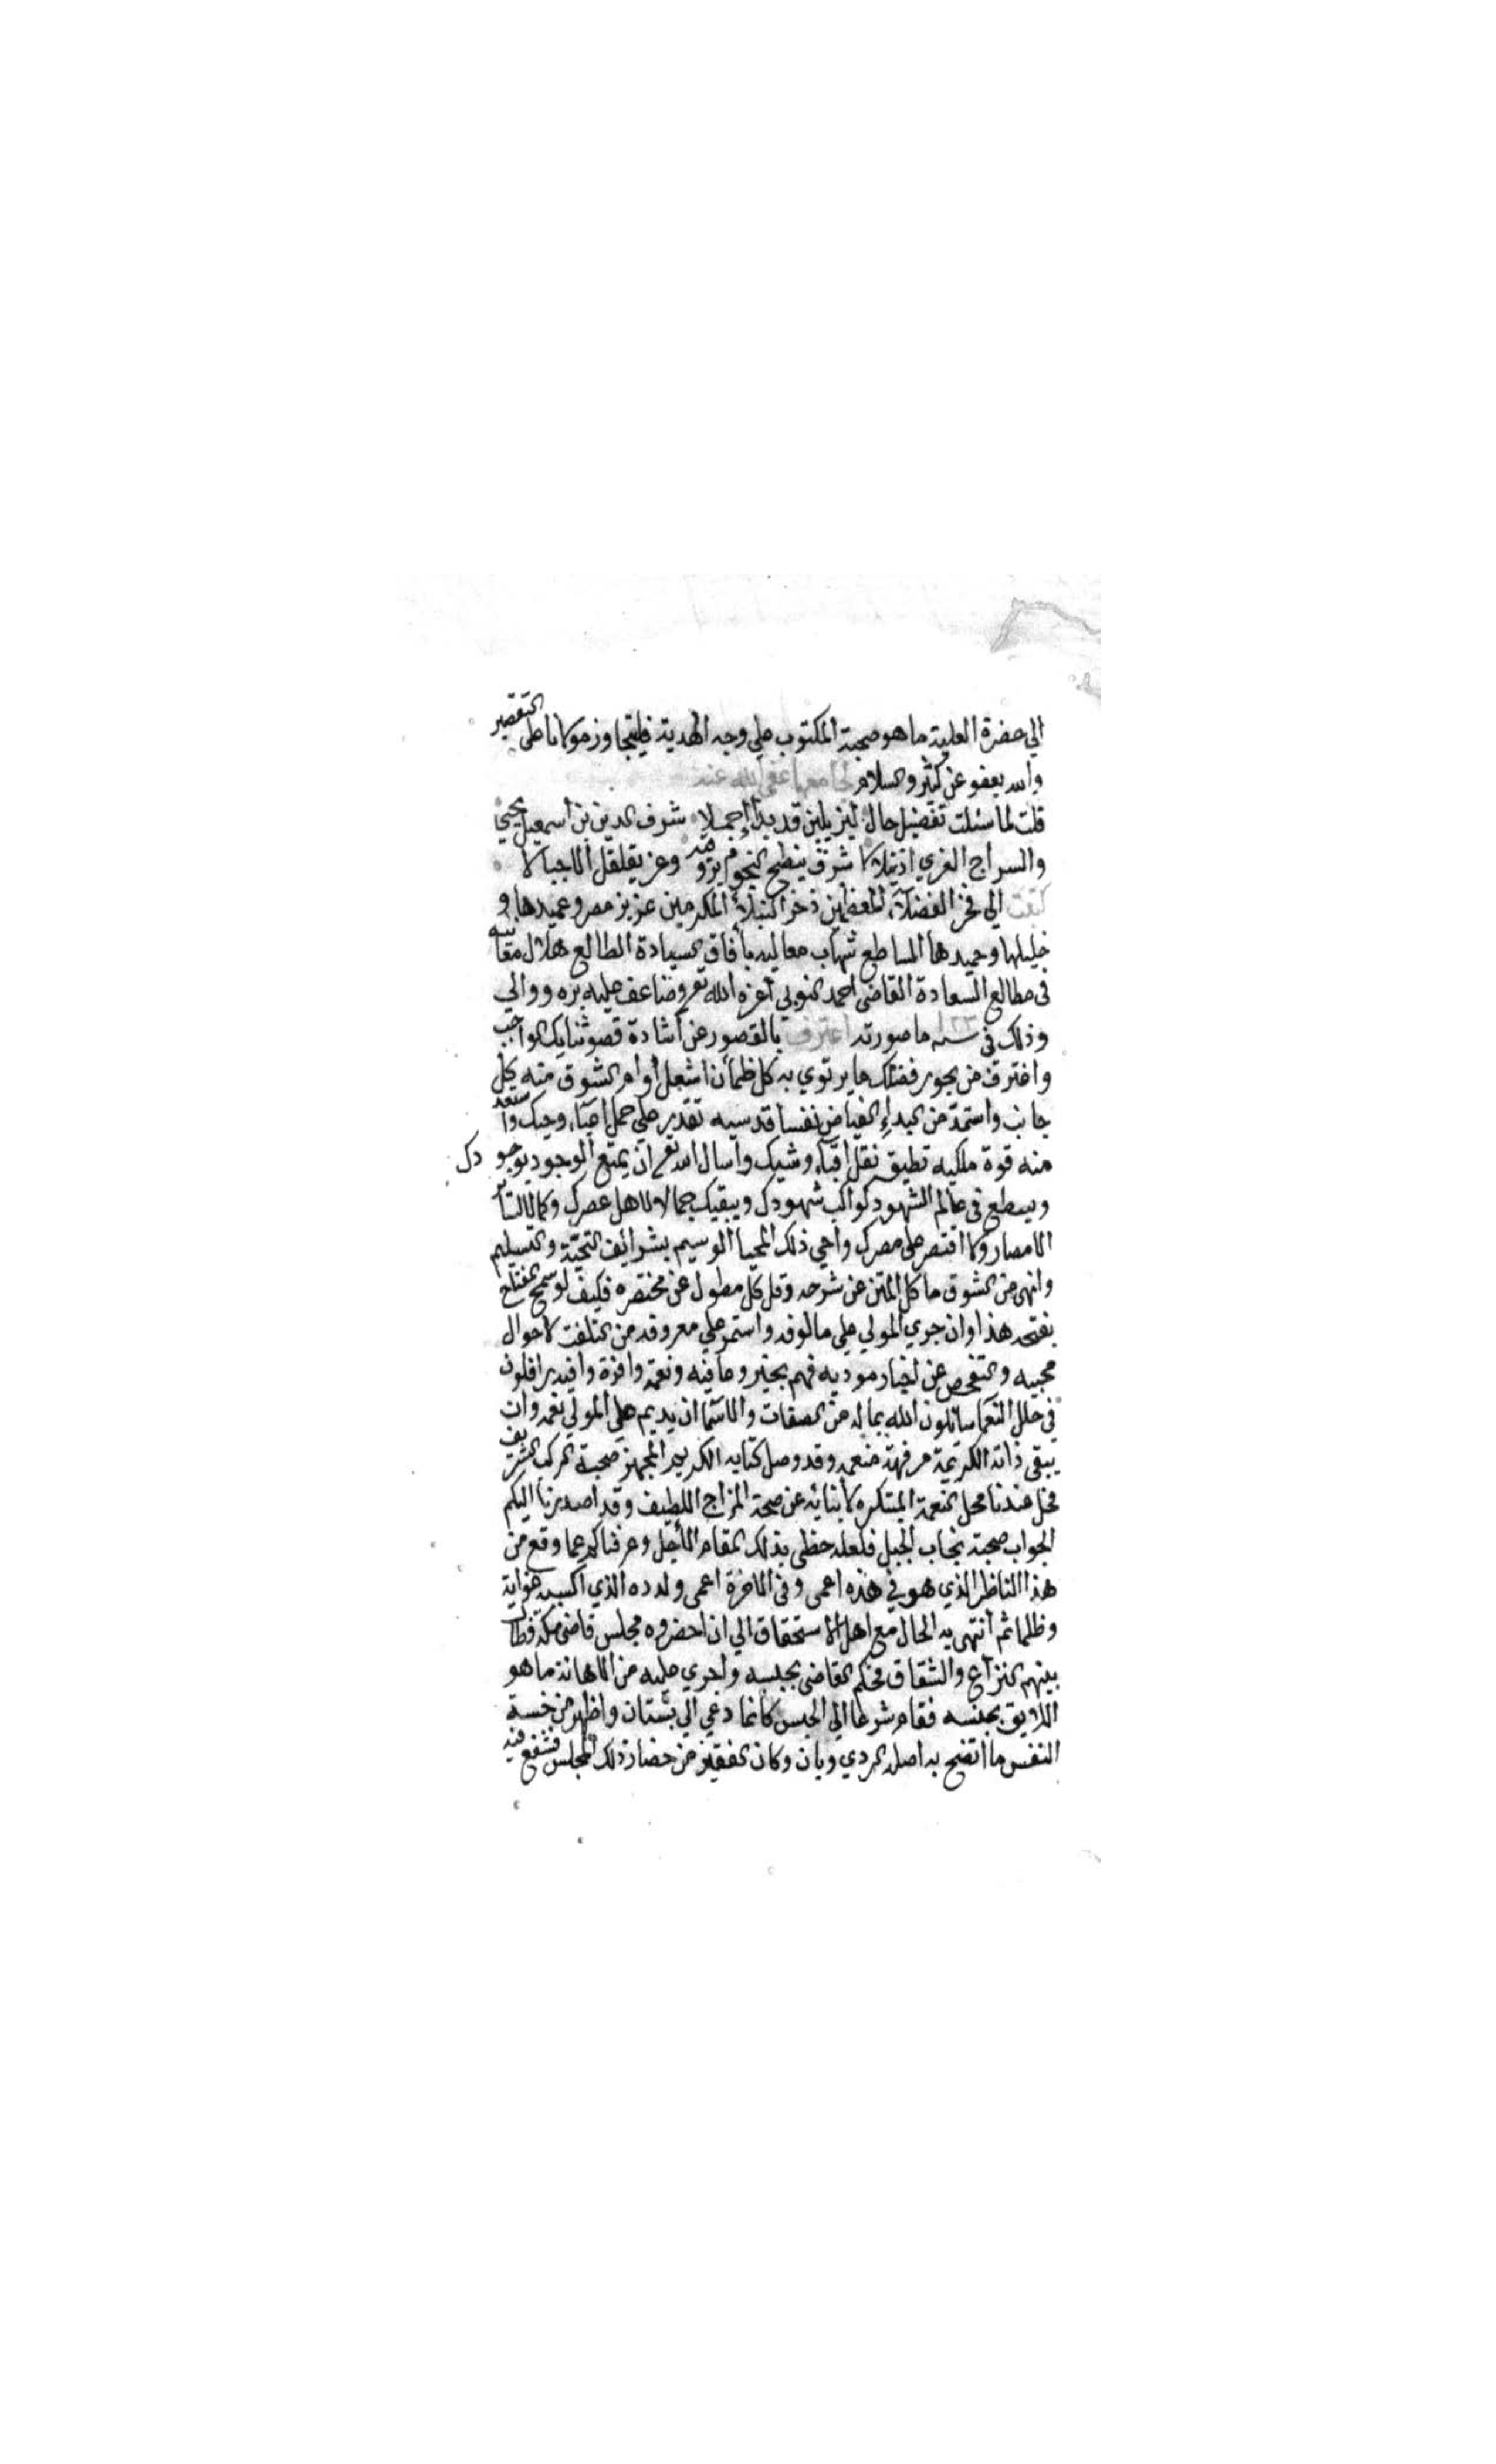 الي حضرة العلية ما هو صحبة المكتوب علي وجه الهدية فليتجاوز مولانا علي التقصير
والله يعفو عن كثير والسلام لجامعها عفي الله عنه
قلت لما سئلت تفضيل حال لنزيلين قد بدا إجملا شرف الدين بن اسمعيل يحيي
والسراج الغزي اذ شرف ينطح النجوم بروقيه وعز يقلقل الاجبالا
كتبت الي فخر الفضلاء المعظمين ذخر النبلاء المكرمين عزيز مصر وعميدها و
خليلها وحميدها الساطع شهاب معاليه بأفاق السيادة الطالع هلال معانيه
في مطالع السعادة القاضي احمد النوبي اعزه الله تع وضاعف عليه بره ووالي
وذلك في سنه ما صورته اعترف بالقصور عن اشادة قصور ثنايك الواجب
واغترف من بحور فضلك ما يرتوي به كل ظمأن اشعل أوام الشوق منه كل
جانب واستمد من المبداء الفياض نفسا قدسيه تقدر علي حمل اعباء وحبك واستعد
منه قوة ملكيه تطيق نقل وشيك وأسال الله تع ان يمتع الوجود بوجودك
ويسطع في عالم الشهود كواكب شهودك ويبقيك جمالا لاهل عصرك وكمالا لسائر
الامصار ولا اقتصر علي مصرك واحي ذلك المحيا الوسيم بشرائف التحية والتسليم
وانهي من الشوق ما كل المتن عن شرحه وقل كل مطول عن مختصره فكيف لو سمح المفتاح
بفتحه هذا وان جري المولي علي مالوفه واستمر علي معروفه من التلفت لاحوال
محبيه والتفحص عن اخبار موديه فهم بخير وعافيه ونعمة وافرة وافيه يرافلون
في حلل النعما سائلون الله بماله من الصفات والاسما ان يديم علي المولي نعمه وان
يبقي ذاته الكريمة مرفهة منعمه وقد وصل كتابه الكريم المجهز صحبة الركب الشريف
فحل عندنا محل النعمة المبتكره لأنبائه عن صحة المزاج اللطيف وقد اصدرنا اليكم
الجواب صحبة نجاب الجبل فلعله حظي بذلك المقام الأجل وعرفناكم عما وقع من
هذا الناظر الذي هو في هذه اعمى وفي الاخرة اعمى ولدده الذي اكسبه غواية
وظلما ثم انتهي به الحال مع اهل الاستحقاق الي ان احضروه مجلس قاضي مكة فطال
بينهم النزاع والشقاق فحكم القاضي بحبسه واجري عليه من الاهانة ما هو
اللايق بجنسه فقام شرعا الي الحبس كأنما دعي الي بستان واظهر من خسة
النفس ما اتضح به اصله الردي وبان وكان الفقير من حضار ذلك المجلس فشفع فيه